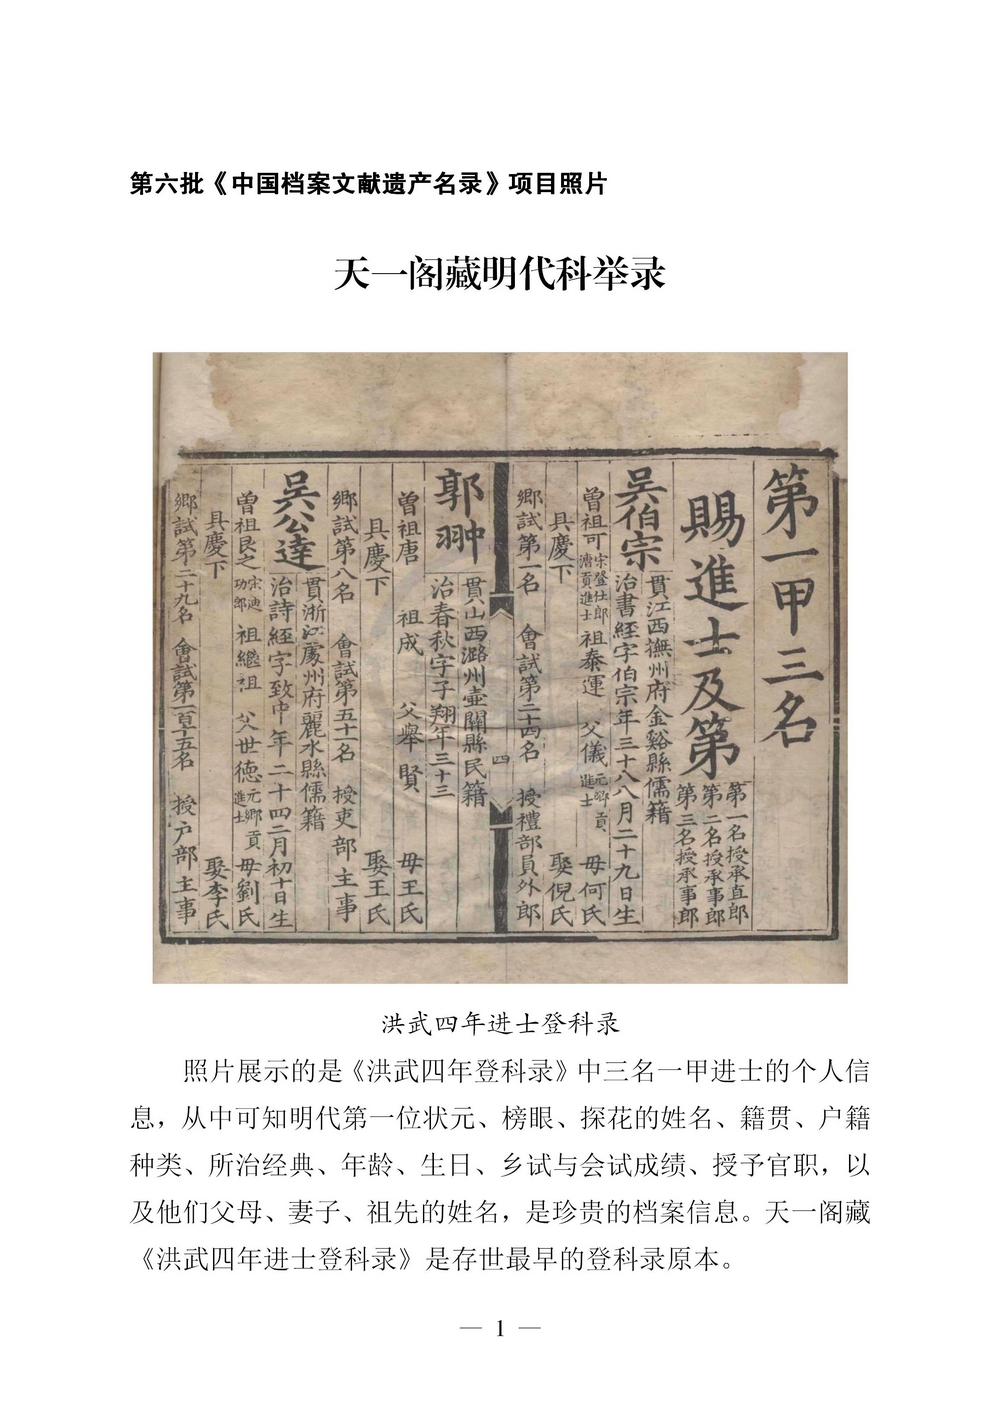 第六批《中国档案文献遗产名录》项目照片
天一阁藏明代科举录
第一甲三名
賜進士及第
第一名授承直郎
第二名授承事郎
第三名授承事郎
吴伯宗
貫江西撫州府金谿縣儒籍
治書經字伯宗年三十八八月二十九日生
曾祖可宋登仕郎漕貢進士 祖泰運 父儀元鄉貢進士 母何氏
具慶下 娶倪氏
鄉試第一名 會試第二十四名 授禮部員外郎
四
郭翀
貫山西潞州壺關縣民籍
治春秋字子翔年三十三
曾祖唐 祖成 父舉賢 母王氏
具慶下 娶王氏
鄉試第八名 會試第五十一名 授吏部主事
吴公達
貫浙江處州府麗水縣儒籍
治詩經字致中年二十四二月初十日生
曾祖良之宋迪功郎 祖繼祖 父世德元鄉貢進士 母劉氏
具慶下 娶李氏
鄉試第二十九名 會試第一百十五名 授户部主事
洪武四年进士登科录
照片展示的是《洪武四年登科录》中三名一甲进士的个人信
息，从中可知明代第一位状元、榜眼、探花的姓名、籍贯、户籍
种类、所治经典、年龄、生日、乡试与会试成绩、授予官职，以
及他们父母、妻子、祖先的姓名，是珍贵的档案信息。天一阁藏
《洪武四年进士登科录》是存世最早的登科录原本。
— 1 —